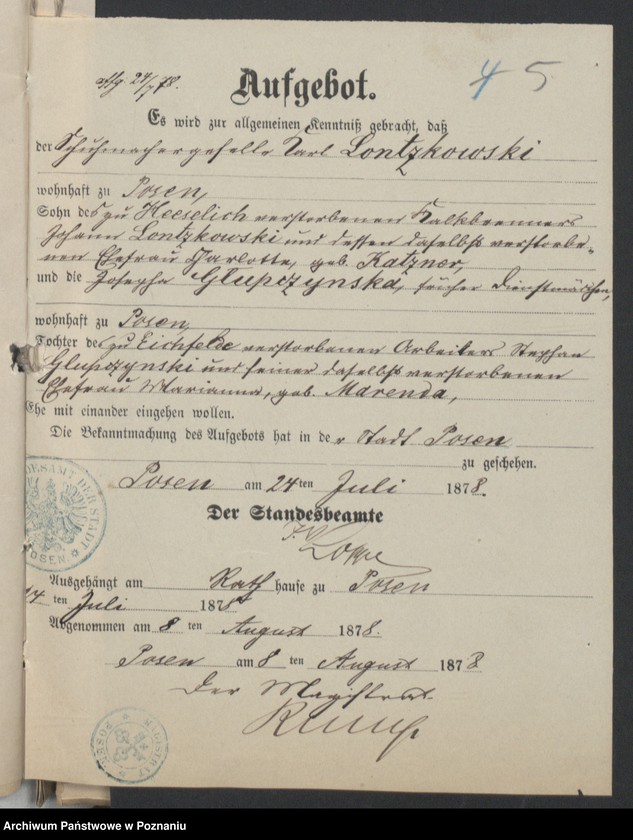 Affg 24/7 78.
4 5
Aufgebot.
Es wird zur allgemeinen Kenntniß gebracht, daß
der Schuhmachergeselle Karl Lontzkowski
wohnhaft zu Posen,
Sohn des zu Heeselich verstorbenen Kalkbrenners
Johann Lontzkowski und dessen daselbst verstorbe-
nen Ehefrau Charlotte, geb. Katzner,
und die Josepha Glupczynska, früher Dienstmädchen,
wohnhaft zu Posen
Tochter des zu Eichfelde verstorbenen Arbeiters Stephan
Glupczynski und seiner daselbst verstorbenen
Ehefrau Marianna, geb. Marenda,
Ehe mit einander eingehen wollen.
Die Bekanntmachung des Aufgebots hat in der Stadt Posen
zu geschehen.
Posen am 24ten Juli 1878.
Der Standesbeamte
I. V.
STANDESAMT DER STADT POSEN
Ausgehängt am Rathhause zu Posen
ten Juli 1878
Abgenommen am 8 ten August 1878.
Posen am 8 ten August 1878
Der Magistrat.
MAGISTRAT POSEN
Archiwum Państwowe w Poznaniu